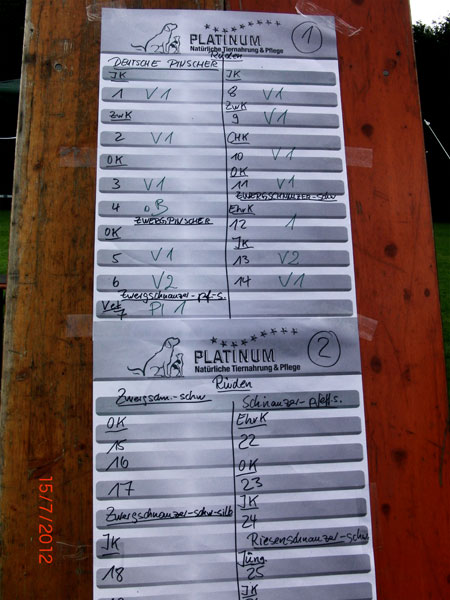 PLATINUM
Natürliche Tiernahrung & Pflege
1
Rüden
DEUTSCHE PINSCHER
JK
1 V1
ZwK
2 V1
OK
3 V1
4 oB
ZWERGPINSCHER
OK
5 V1
6 V2
Zwergschnauzer-pf-s.
Vet
7 Pl 1
JK
8 V1
ZwK
9 V1
CHK
10 V1
OK
11 V1
ZWERGSCHNAUZER-schw
EhrK
12 1
JK
13 V2
14 V1
PLATINUM
Natürliche Tiernahrung & Pflege
2
Rüden
OK
15
16
17
Zwergschnauzer-schw-silb
JK
18
Schnauzer-pfeff-s.
EhrK
22
OK
23
JK
24
Riesenschnauzer-schw
Jüng
25
JK
15/7/2012